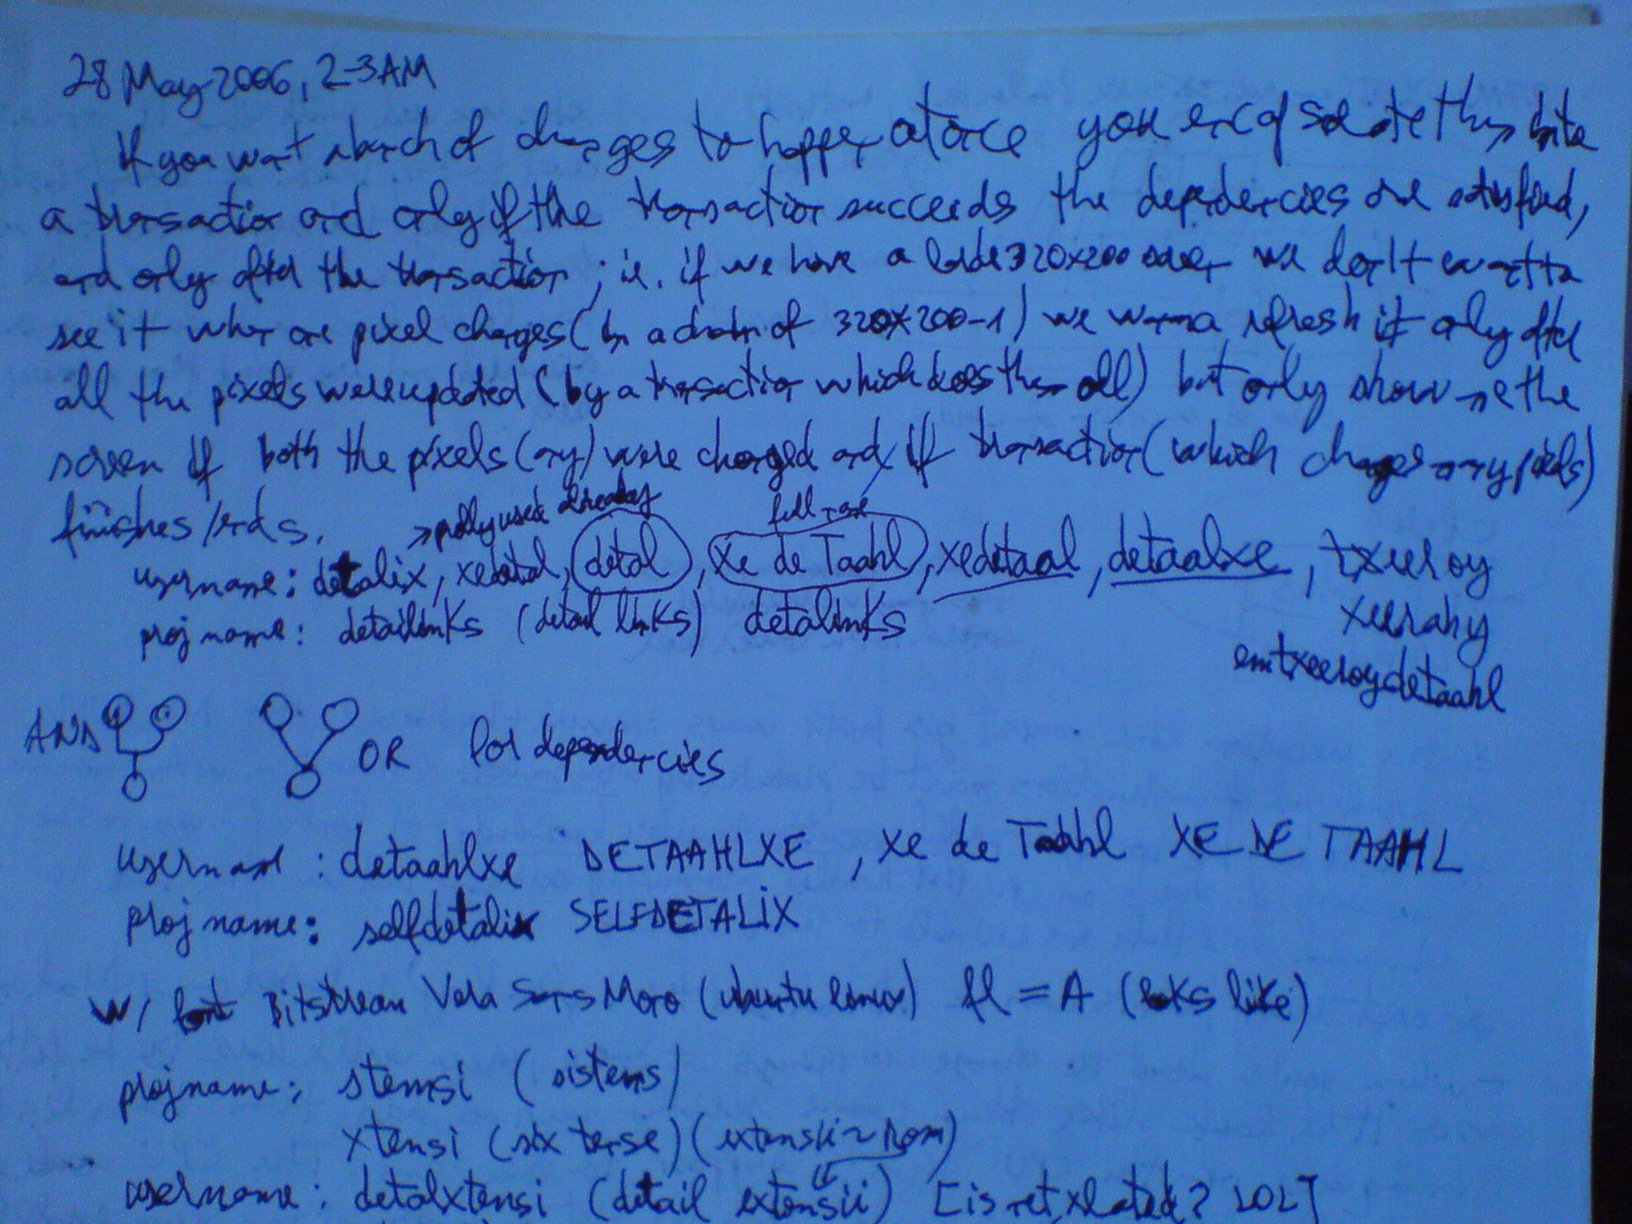 28 May 2006, 2-3AM
If you want a bunch of changes to happen at once you encapsulate them into
a transaction and only if the transaction succeeds the dependencies are satisfied,
and only after the transaction; ie. if we have a 320x200 screen we don't want to
see it when one pixel changes (in a chain of 320x200-1) we wanna refresh it only after
all the pixels were updated (by a transaction which does them all) but only show me the
screen if both the pixels (any) were changed and if transaction (which changes any pixels)
finishes/ends.
→ prolly used already
full name
username: detalix, xedetal, detal, Xe de Taahl, xedetaal, detaalxe, txeeroy
xeerahy
proj name: detailinks (detail links) detalinks
emtxeeroydetaahl
AND OR for dependencies
username: detaahlxe DETAAHLXE, xe de Taahl XE DE TAAHL
proj name: selfdetalix SELFDETALiX
w/ font Bitstream Vera Sans Mono (ubuntu linux) fl = A (looks like)
projname: stemsi (sistems)
xtensi (six tense) (extensii ~ Rom)
username: detalxtensi (detail extensii) [is retxelated? LOL]